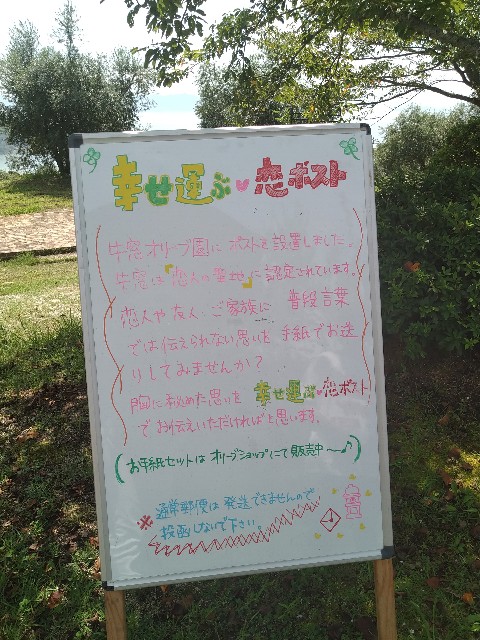 幸せ運ぶ♥恋ポスト
牛窓オリーブ園にポストを設置しました。
牛窓は『恋人の聖地』に認定されています。
恋人や友人、ご家族に 普段言葉
では伝えられない思いを 手紙でお送
りしてみませんか?
胸に秘めた思いを 幸せ運ぶ♥恋ポスト
でお伝えいただければと思います。
(お手紙セットは オリーブショップにて販売中〜♪)
※通常郵便は発送できませんので
投函しないで下さい。